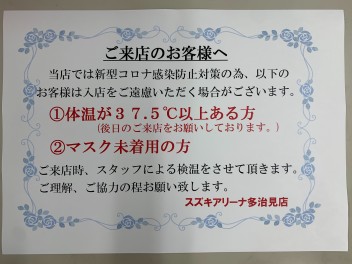 ご来店のお客様へ
当店では新型コロナ感染防止対策の為、以下の
お客様は入店をご遠慮いただく場合がございます。
①体温が37.5℃以上ある方
(後日のご来店をお願いしております。)
②マスク未着用の方
ご来店時、スタッフによる検温をさせて頂きます。
ご理解、ご協力の程お願い致します。
スズキアリーナ多治見店